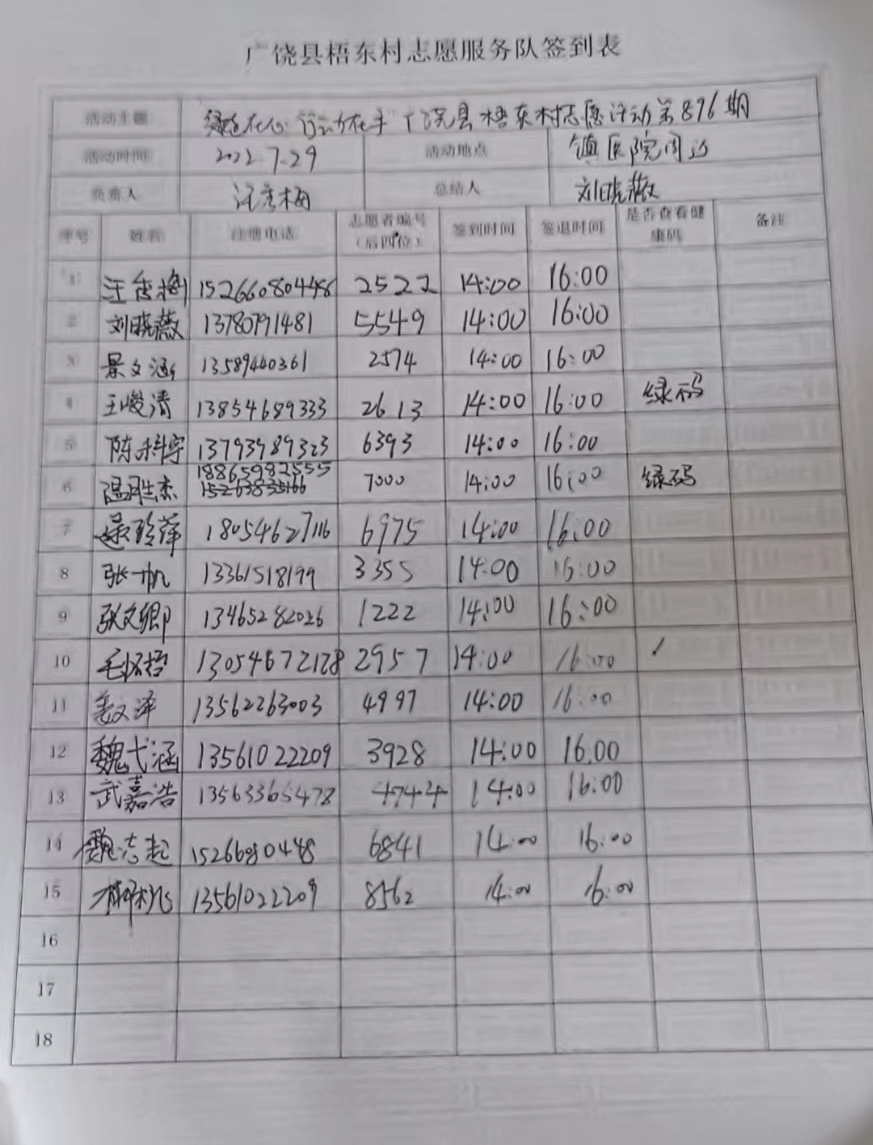 广饶县梧东村志愿服务队签到表
活动主题 在心 行动在手 广饶县梧东村志愿活动第896期
活动时间 2022.7.29 活动地点 镇医院周边
负责人 汪秀梅 总结人 刘晓薇
序号 姓名 注册电话 志愿者编号（后四位） 签到时间 签退时间 是否查看健康码 备注
1 汪秀梅 2522 14:00 16:00
2 刘晓薇 13780791481 5549 14:00 16:00
3 景文涵 13589440361 2574 14:00 16:00
4 王峻清 13854689333 2613 14:00 16:00 绿码
5 陈科宇 13793989323 6393 14:00 16:00
6 温胜杰 18865982555 7000 14:00 16:00 绿码
7 18054627116 6975 14:00 16:00
8 张一帆 13361518199 3355 14:00 16:00
9 张文卿 13465282026 1222 14:00 16:00
10 13054672128 2957 14:00 16:00
11 姜文泽 13562263003 4997 14:00 16:00
12 魏弋涵 13561022209 3928 14:00 16.00
13 武嘉浩 13563365478 4744 14:00 16:00
14 魏志起 6841 14:00 16:00
15 13561022209 8562 14:00 16:00
16
17
18